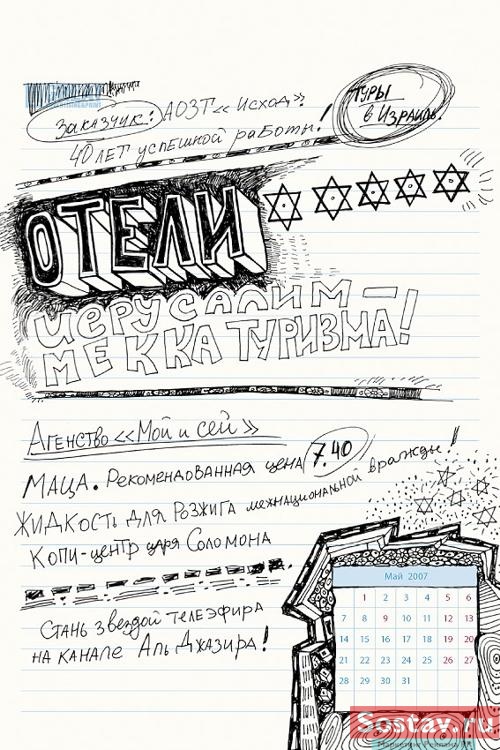 Заказчик: АОЗТ «Исход»
40 лет успешной работы!
Туры
в Израиль!
ОТЕЛИ
ИЕРУСАЛИМ –
МЕККА ТУРИЗМА!
Агенство «Мой и сей»
Маца. Рекомендованная цена 7.40
Жидкость для розжига межнациональной вражды!
Копи-центр царя Соломона
Стань звездой телеэфира
на канале Аль Джазира!
Май 2007
1 2 3 4 5 6
7 8 9 10 11 12 13
14 15 16 17 18 19 20
21 22 23 24 25 26 27
28 29 30 31
Sostav.ru